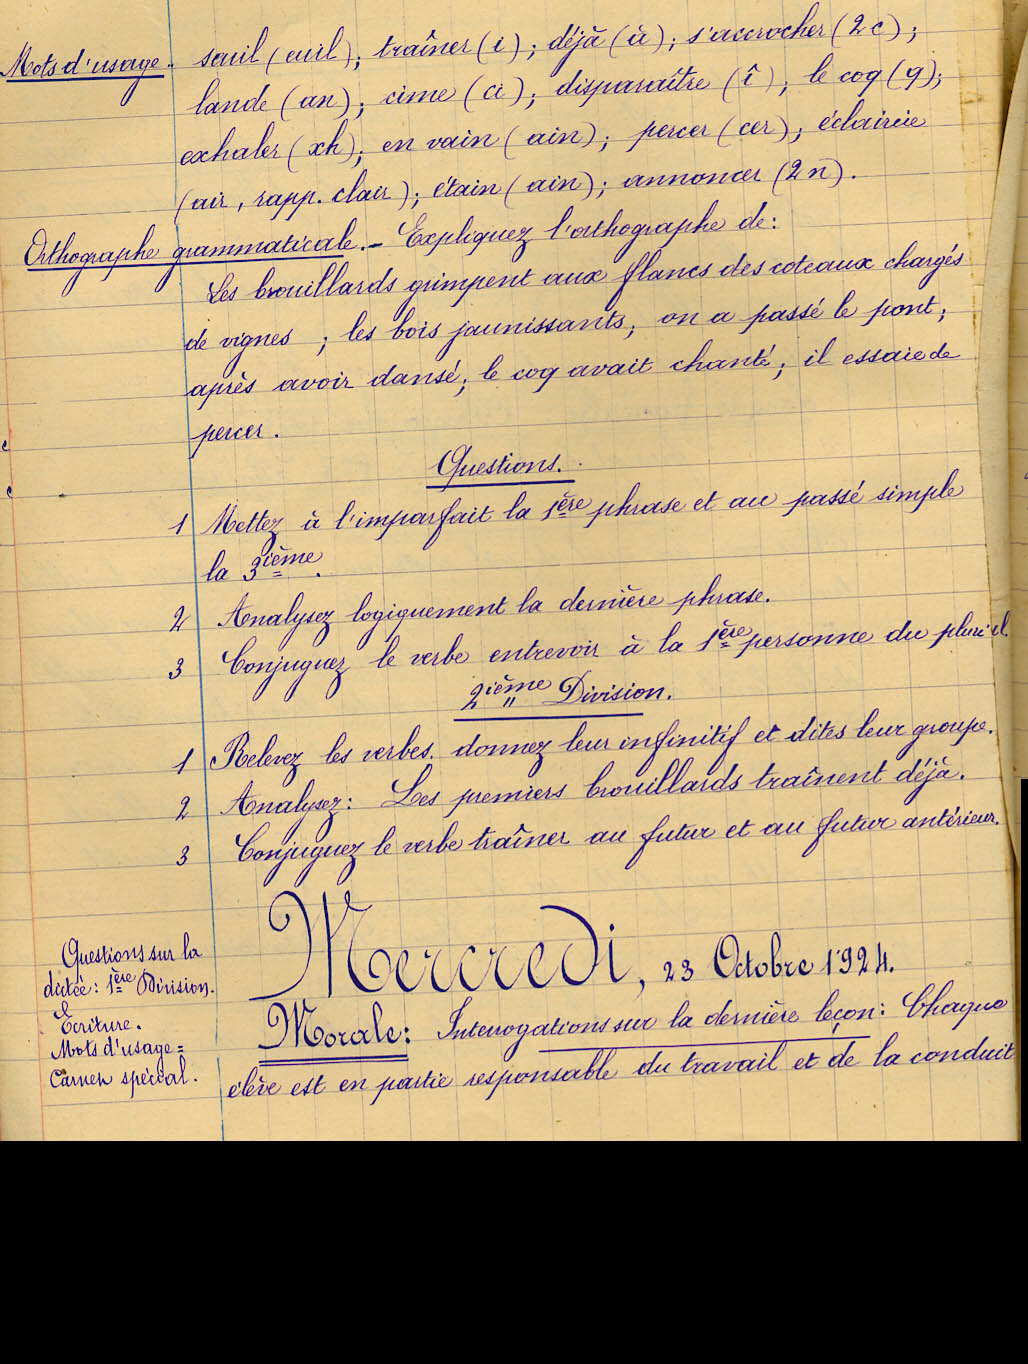 Mots d'usage. seuil (euil); traîner (i); déjà (à); s'accrocher (2c);
lande (an); cime (ci); disparaître (î); le coq (q);
exhaler (xh); en vain (ain); percer (cer); éclaircie
(air, rapp. clair); étain (ain); annoncer (2n).
Orthographe grammaticale. - Expliquez l'orthographe de:
Les brouillards grimpent aux flancs des coteaux chargés
de vignes ; les bois jaunissants; on a passé le pont;
après avoir dansé; le coq avait chanté; il essaie de
percer.
Questions.
1 Mettez à l'imparfait la 1ère phrase et au passé simple
la 3ième.
2 Analysez logiquement la dernière phrase.
3 Conjuguez le verbe entrevoir à la 1ère personne du pluriel.
2ième Division.
1 Relevez les verbes. donnez leur infinitif et dites leur groupe.
2 Analysez: Les premiers brouillards traînent déjà.
3 Conjuguez le verbe traîner au futur et au futur antérieur.
Mercredi, 23 Octobre 1924.
Questions sur la
dictée: 1ère Division.
Ecriture.
Mots d'usage =
Carnet spécial.
Morale: Interrogations sur la dernière leçon: Chaque
élève est en partie responsable du travail et de la conduit